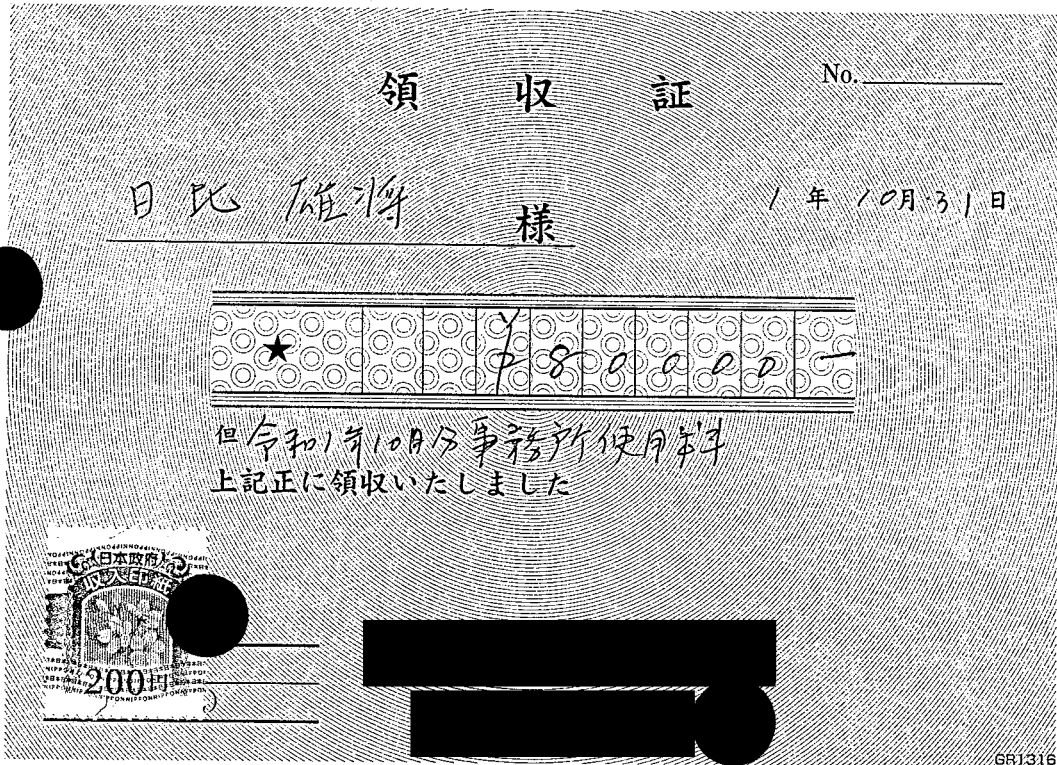 領収証
No.
日比 雄将 様
1年10月31日
★ ¥80000-
但 令和1年10月分事務所使用料
上記正に領収いたしました
日本政府
収入印紙
200円
GR1316